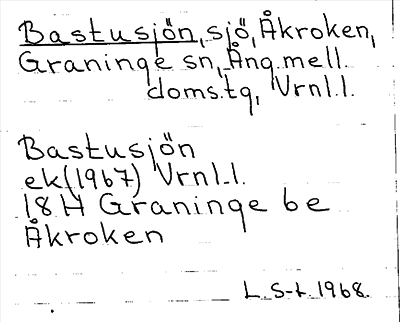 Bastusjön, sjö, Åkroken,
Graninge sn, Ång. mell.
doms.tg, Vrnl.l.
Bastusjön
ek(1967) Vrnl.l.
18H Graninge be
Åkroken
L. S-t 1968.